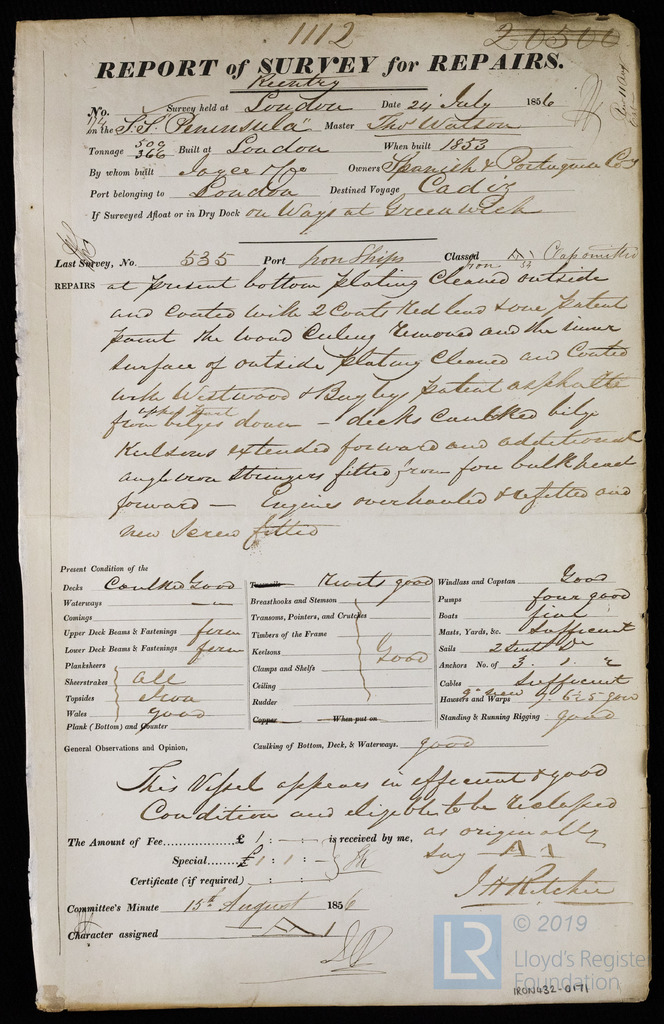 1112 20500
REPORT of SURVEY for REPAIRS.
Reentry
No. Survey held at London Date 24 July 1856
on the S.S. "Peninsula" Master Thos Watson
Tonnage 500 366 Built at London When built 1853
By whom built Joyce & Co Owners Spanish & Portuguese Co
Port belonging to London Destined Voyage Cadiz
If Surveyed Afloat or in Dry Dock on Ways at Greenwich
Last Survey, No. 535 Port Iron Ships Classed A1 Clap omitted
Iron
REPAIRS at present bottom plating cleaned outside
and coated with 2 Coats Red lead & one patent
paint the wood Ceiling removed and the inner
surface of outside plating cleaned and Coated
with Westwood & Baylys patent asphalte
from bilges down – decks caulked bilge
Keelsons extended forward and additional
angle iron Stringers fitted from fore bulkhead
forward — Engines overhauled & refitted and
new Screw fitted
Present Condition of the
Decks Caulked Good
Waterways
Comings
Upper Deck Beams & Fastenings firm
Lower Deck Beams & Fastenings firm
Planksheers
Sheerstrakes All
Topsides Iron
Wales good
Plank (Bottom) and Counter
Treenails Rivets good
Breasthooks and Stemson
Transoms, Pointers, and Crutches
Timbers of the Frame
Keelsons Good
Clamps and Shelfs
Ceiling
Rudder
Copper When put on
Windlass and Capstan Good
Pumps four good
Boats five
Masts, Yards, &c. Sufficient
Sails 2 suits Do
Anchors No. of 3. 1.
Cables Sufficient
Hawsers and Warps good
Standing & Running Rigging good
General Observations and Opinion, Caulking of Bottom, Deck, & Waterways. good
This Vessel appears in efficient & good
Condition and eligible to be reclassed
as originally
say A1
The Amount of Fee............ £ 1 : - : - is received by me,
Special...... £ 1 : 1 : -
Certificate (if required) : :
J H Ritchie
Committee's Minute 15th August 1856
Character assigned A1
© 2019
LR Lloyd's Register
Foundation
IRON432-0171